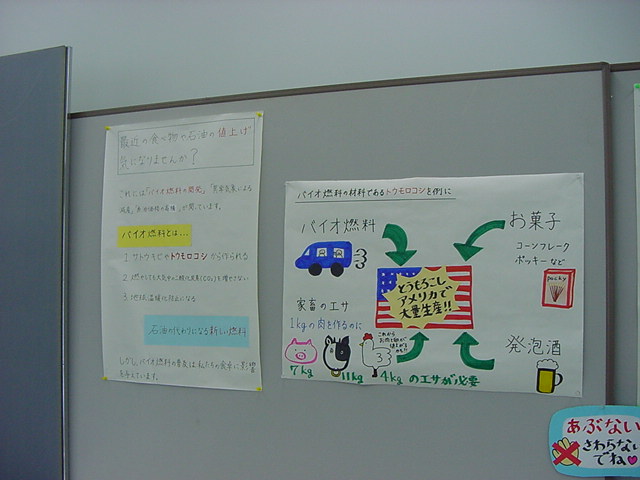 最近の食べ物や石油の値上げ
気になりませんか?
これには「バイオ燃料の開発」「異常気象による
減産」「原油価格の高騰」が関っています。
バイオ燃料とは…
1 サトウキビやトウモロコシから作られる
2 燃やしても大気中の二酸化炭素(CO₂)を増やさない
3 地球温暖化防止になる
石油の代わりになる新しい燃料
しかし、バイオ燃料の普及は私たちの食卓に影響
を与えています。
バイオ燃料の材料であるトウモロコシを例に
バイオ燃料
お菓子
コーンフレーク
ポッキーなど
pocky
とうもろこし
アメリカで
大量生産!!
家畜のエサ
1kgの肉を作るのに
発泡酒
7kg 11kg 4kg のエサが必要
あぶない
さわらない
でね